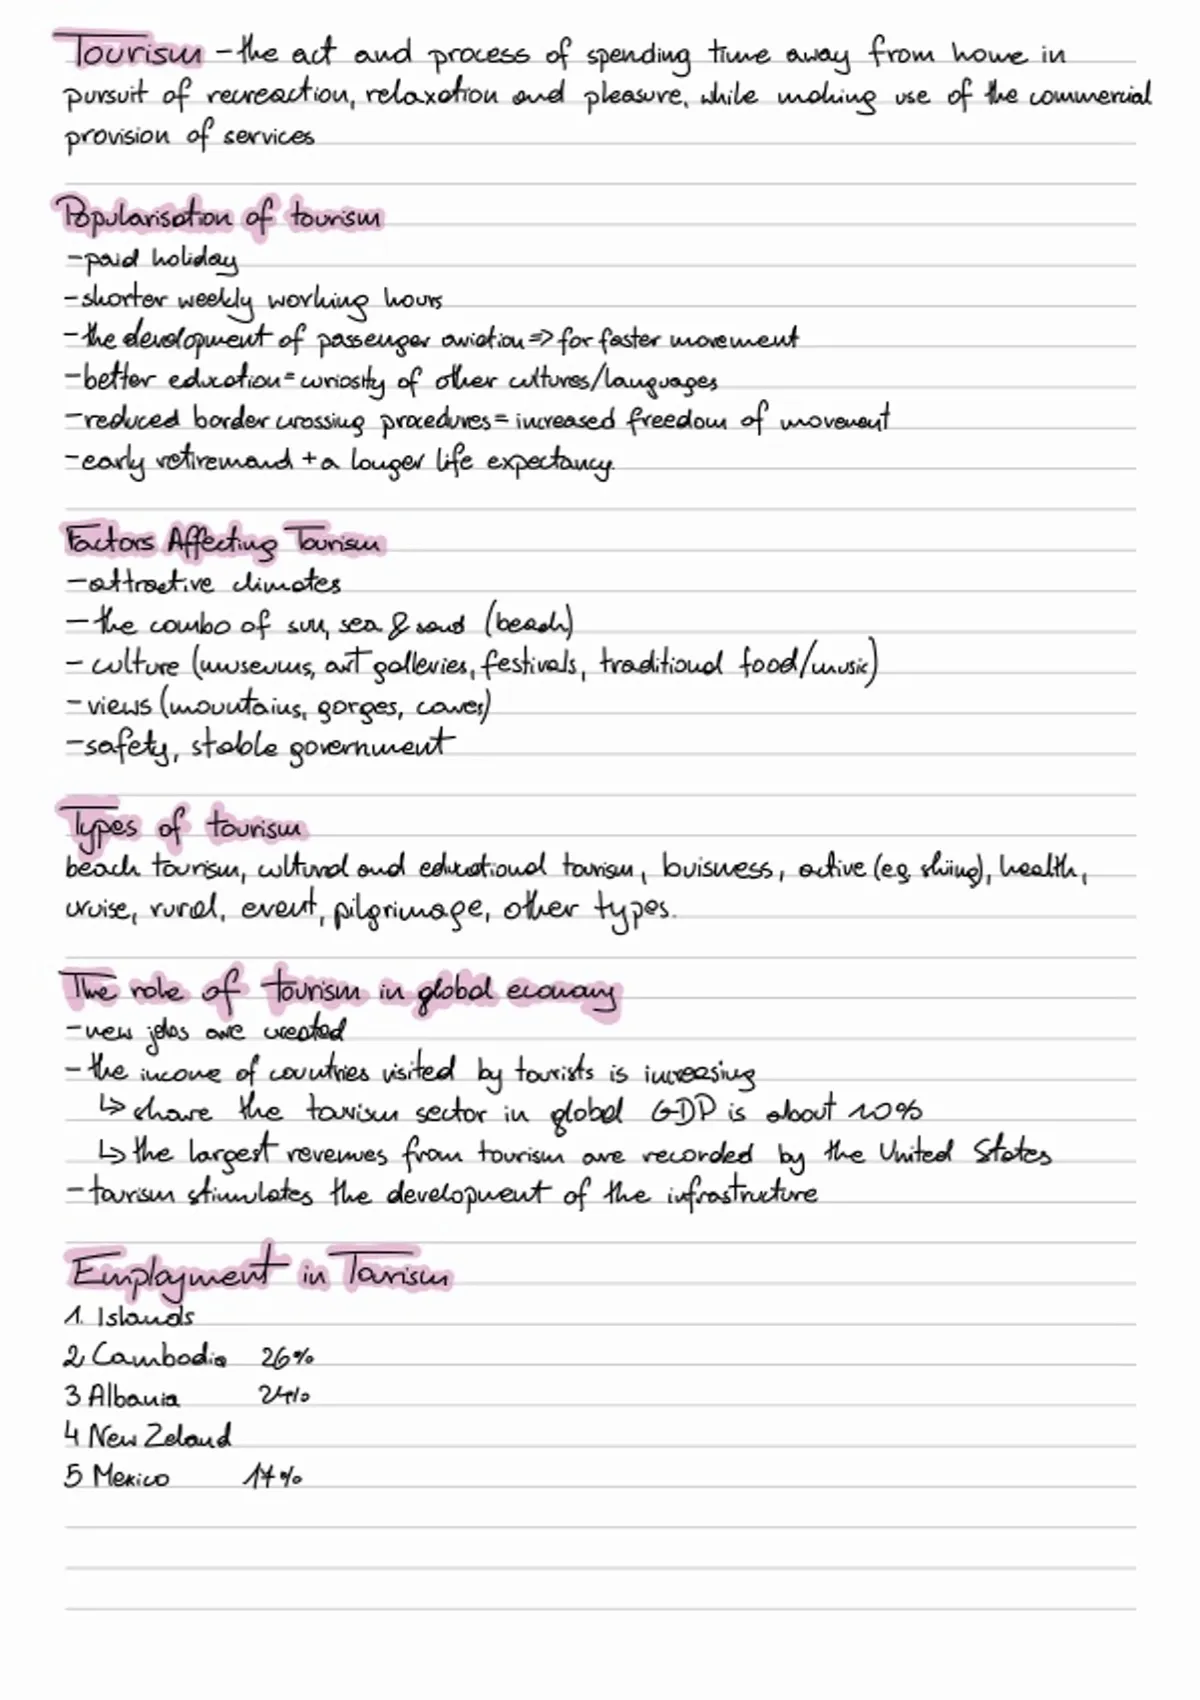 Tourism - the act and process of spending time away from home in
pursuit of recreaction, relaxation and pleasure, while making use of the commercial
provision of services
Popularisation of tourism
- paid holiday
- shorter weekly working hours
- the development of passenger aviation => for faster movement
- better education = curiosity of other cultures/languages
- reduced border crossing procedures = increased freedom of movement
- early retiremand + a longer life expectancy.
Factors Affecting Tourism
- attractive climates
- the combo of sun, sea & sand (beach)
- culture (museums, art galleries, festivals, traditional food/music)
- views (mountains, gorges, caves)
- safety, stable government
Types of tourism
beach tourism, cultural and educational tourism, buisness, active (eg. skiing), health,
cruise, rural, event, pilgrimage, other types.
The role of tourism in global economy
- new jobs are created
- the income of countries visited by tourists is increasing
↳ share the tourism sector in global GDP is about 10%
↳ the largest revenues from tourism are recorded by the United States
- tourism stimulates the development of the infrastructure
Employment in Tourism
1. Islands
2 Cambodia 26%
3 Albania 24%
4 New Zeland
5 Mexico 17%